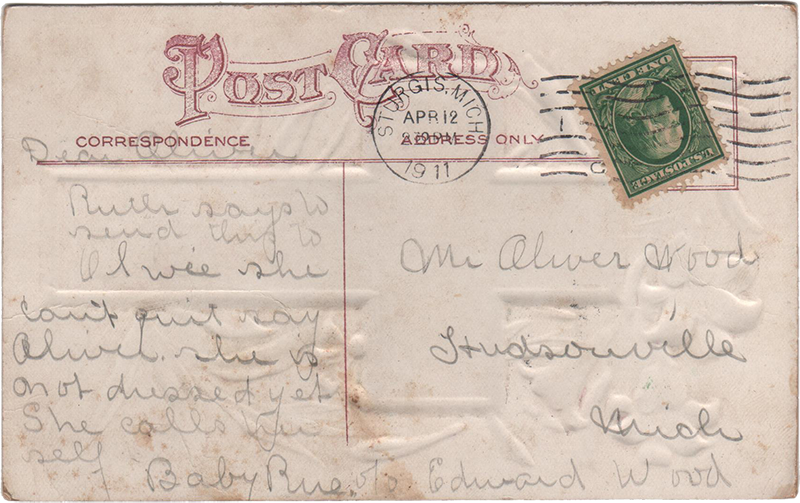 POST CARD
STURGIS, MICH
APR 12
1911
ONE CENT
U.S. POSTAGE
CORRESPONDENCE
ADDRESS ONLY
Dear Oliver
Ruth says to
send this to
Olwee she
can't quit say
Oliver. she is
not dressed yet
She calls her
self
Baby Rue
Mr Oliver Wood
Hudsonville
Mich
c/o Edward Wood